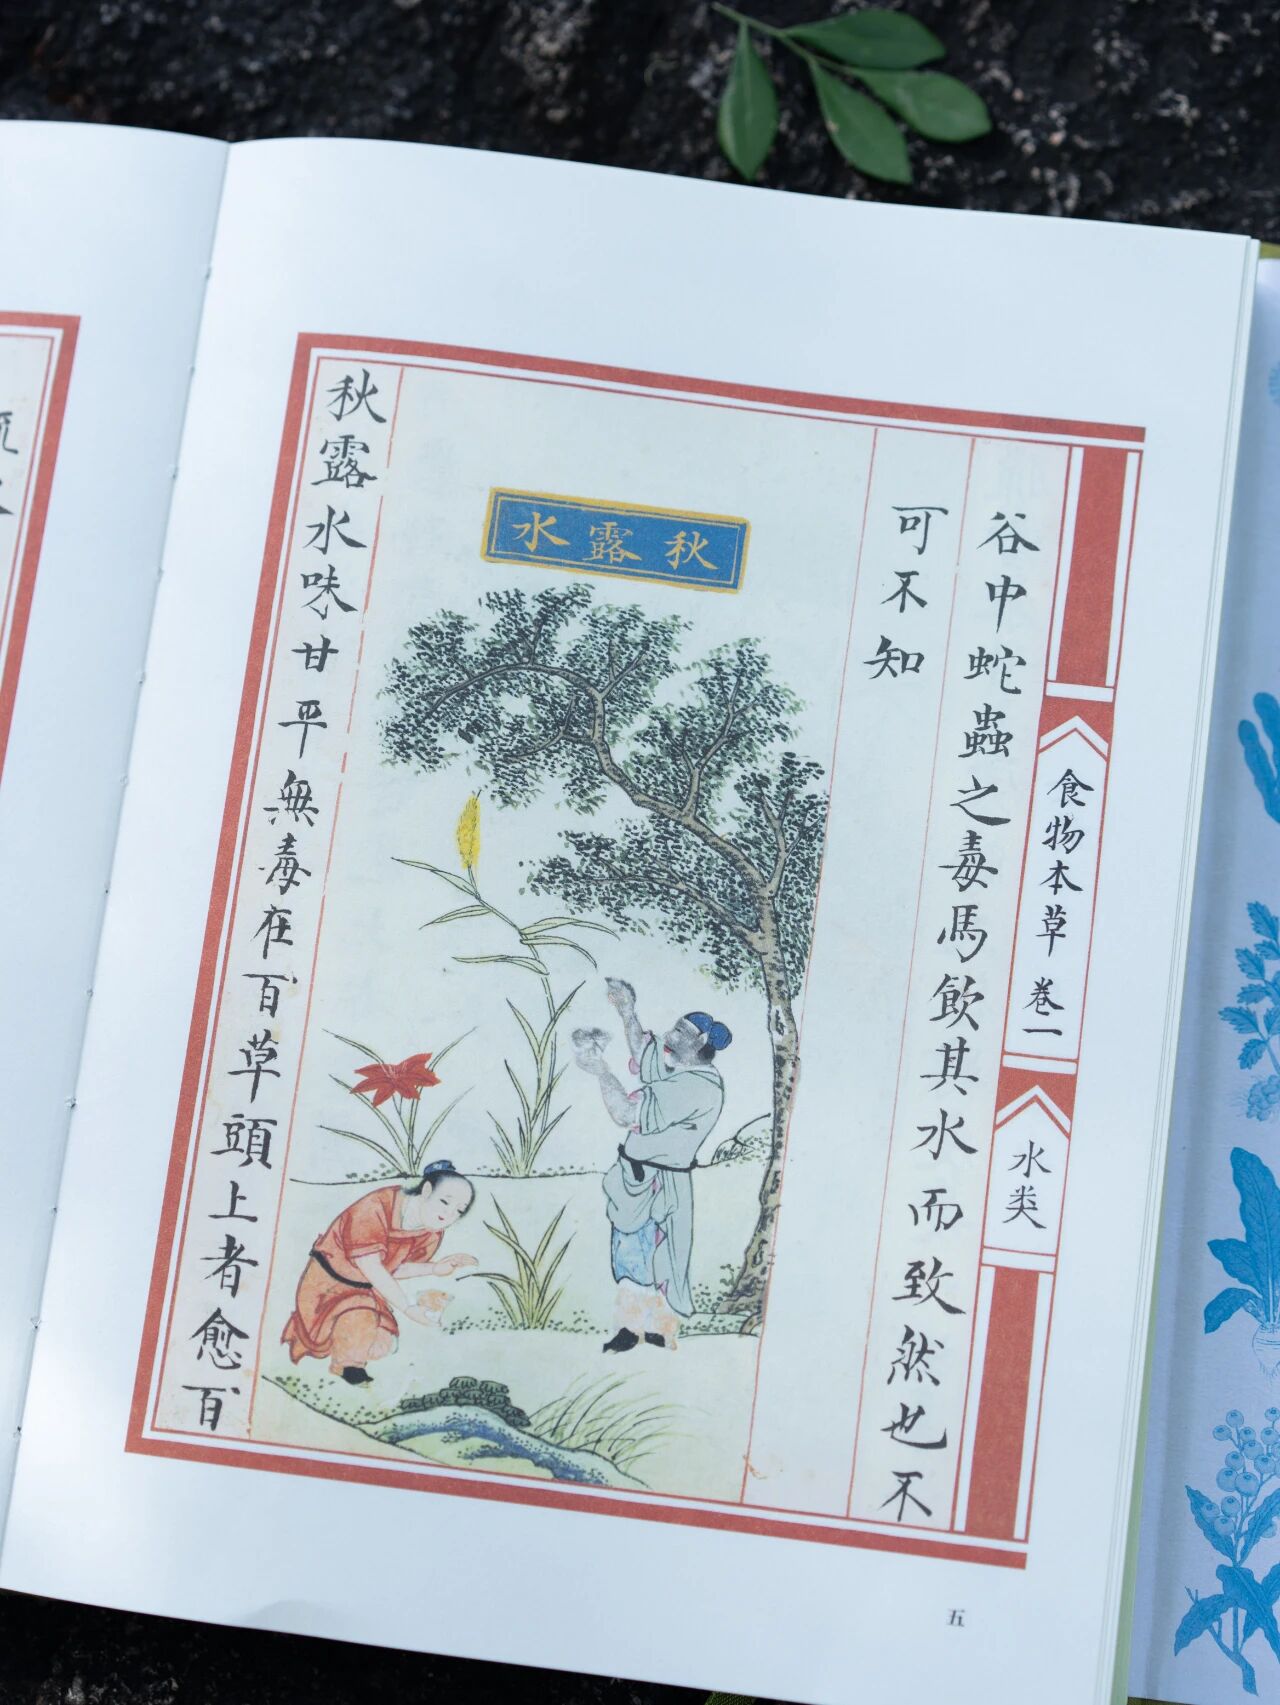 食物本草 卷一
水类
谷中蛇蟲之毒馬飲其水而致然也不
可不知
秋露水
秋露水味甘平無毒在百草頭上者愈百
五